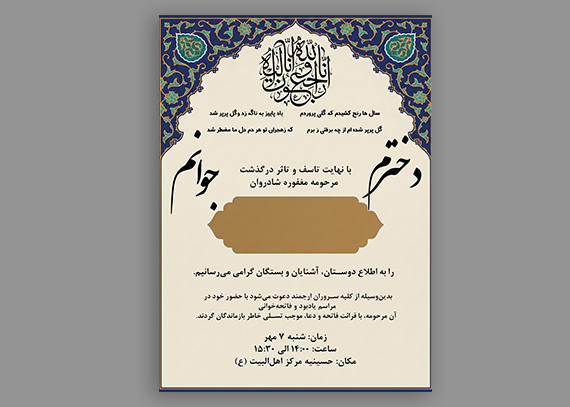 انا لله و انا اليه راجعون
سال ها رنج کشیدم که گلی پروردم    باد پاییز به ناگه زد و گل پرپر شد
گل پرپر شده ام از چه برفتی ز برم    که زهجران تو هر دم دل ما مضطر شد
دخترم جوانم
با نهایت تاسف و تاثر درگذشت
مرحومه مغفوره شادروان
را به اطلاع دوستان، آشنایان و بستگان گرامی می‌رسانیم.
بدین‌وسیله از کلیه سروران ارجمند دعوت می‌شود با حضور خود در
مراسم یادبود و فاتحه‌خوانی
آن مرحومه، با قرائت فاتحه و دعا، موجب تسلی خاطر بازماندگان گردند.
زمان: شنبه ۷ مهر
ساعت: ۱۴:۰۰ الی ۱۵:۳۰
مکان: حسینیه مرکز اهل‌البیت (ع)